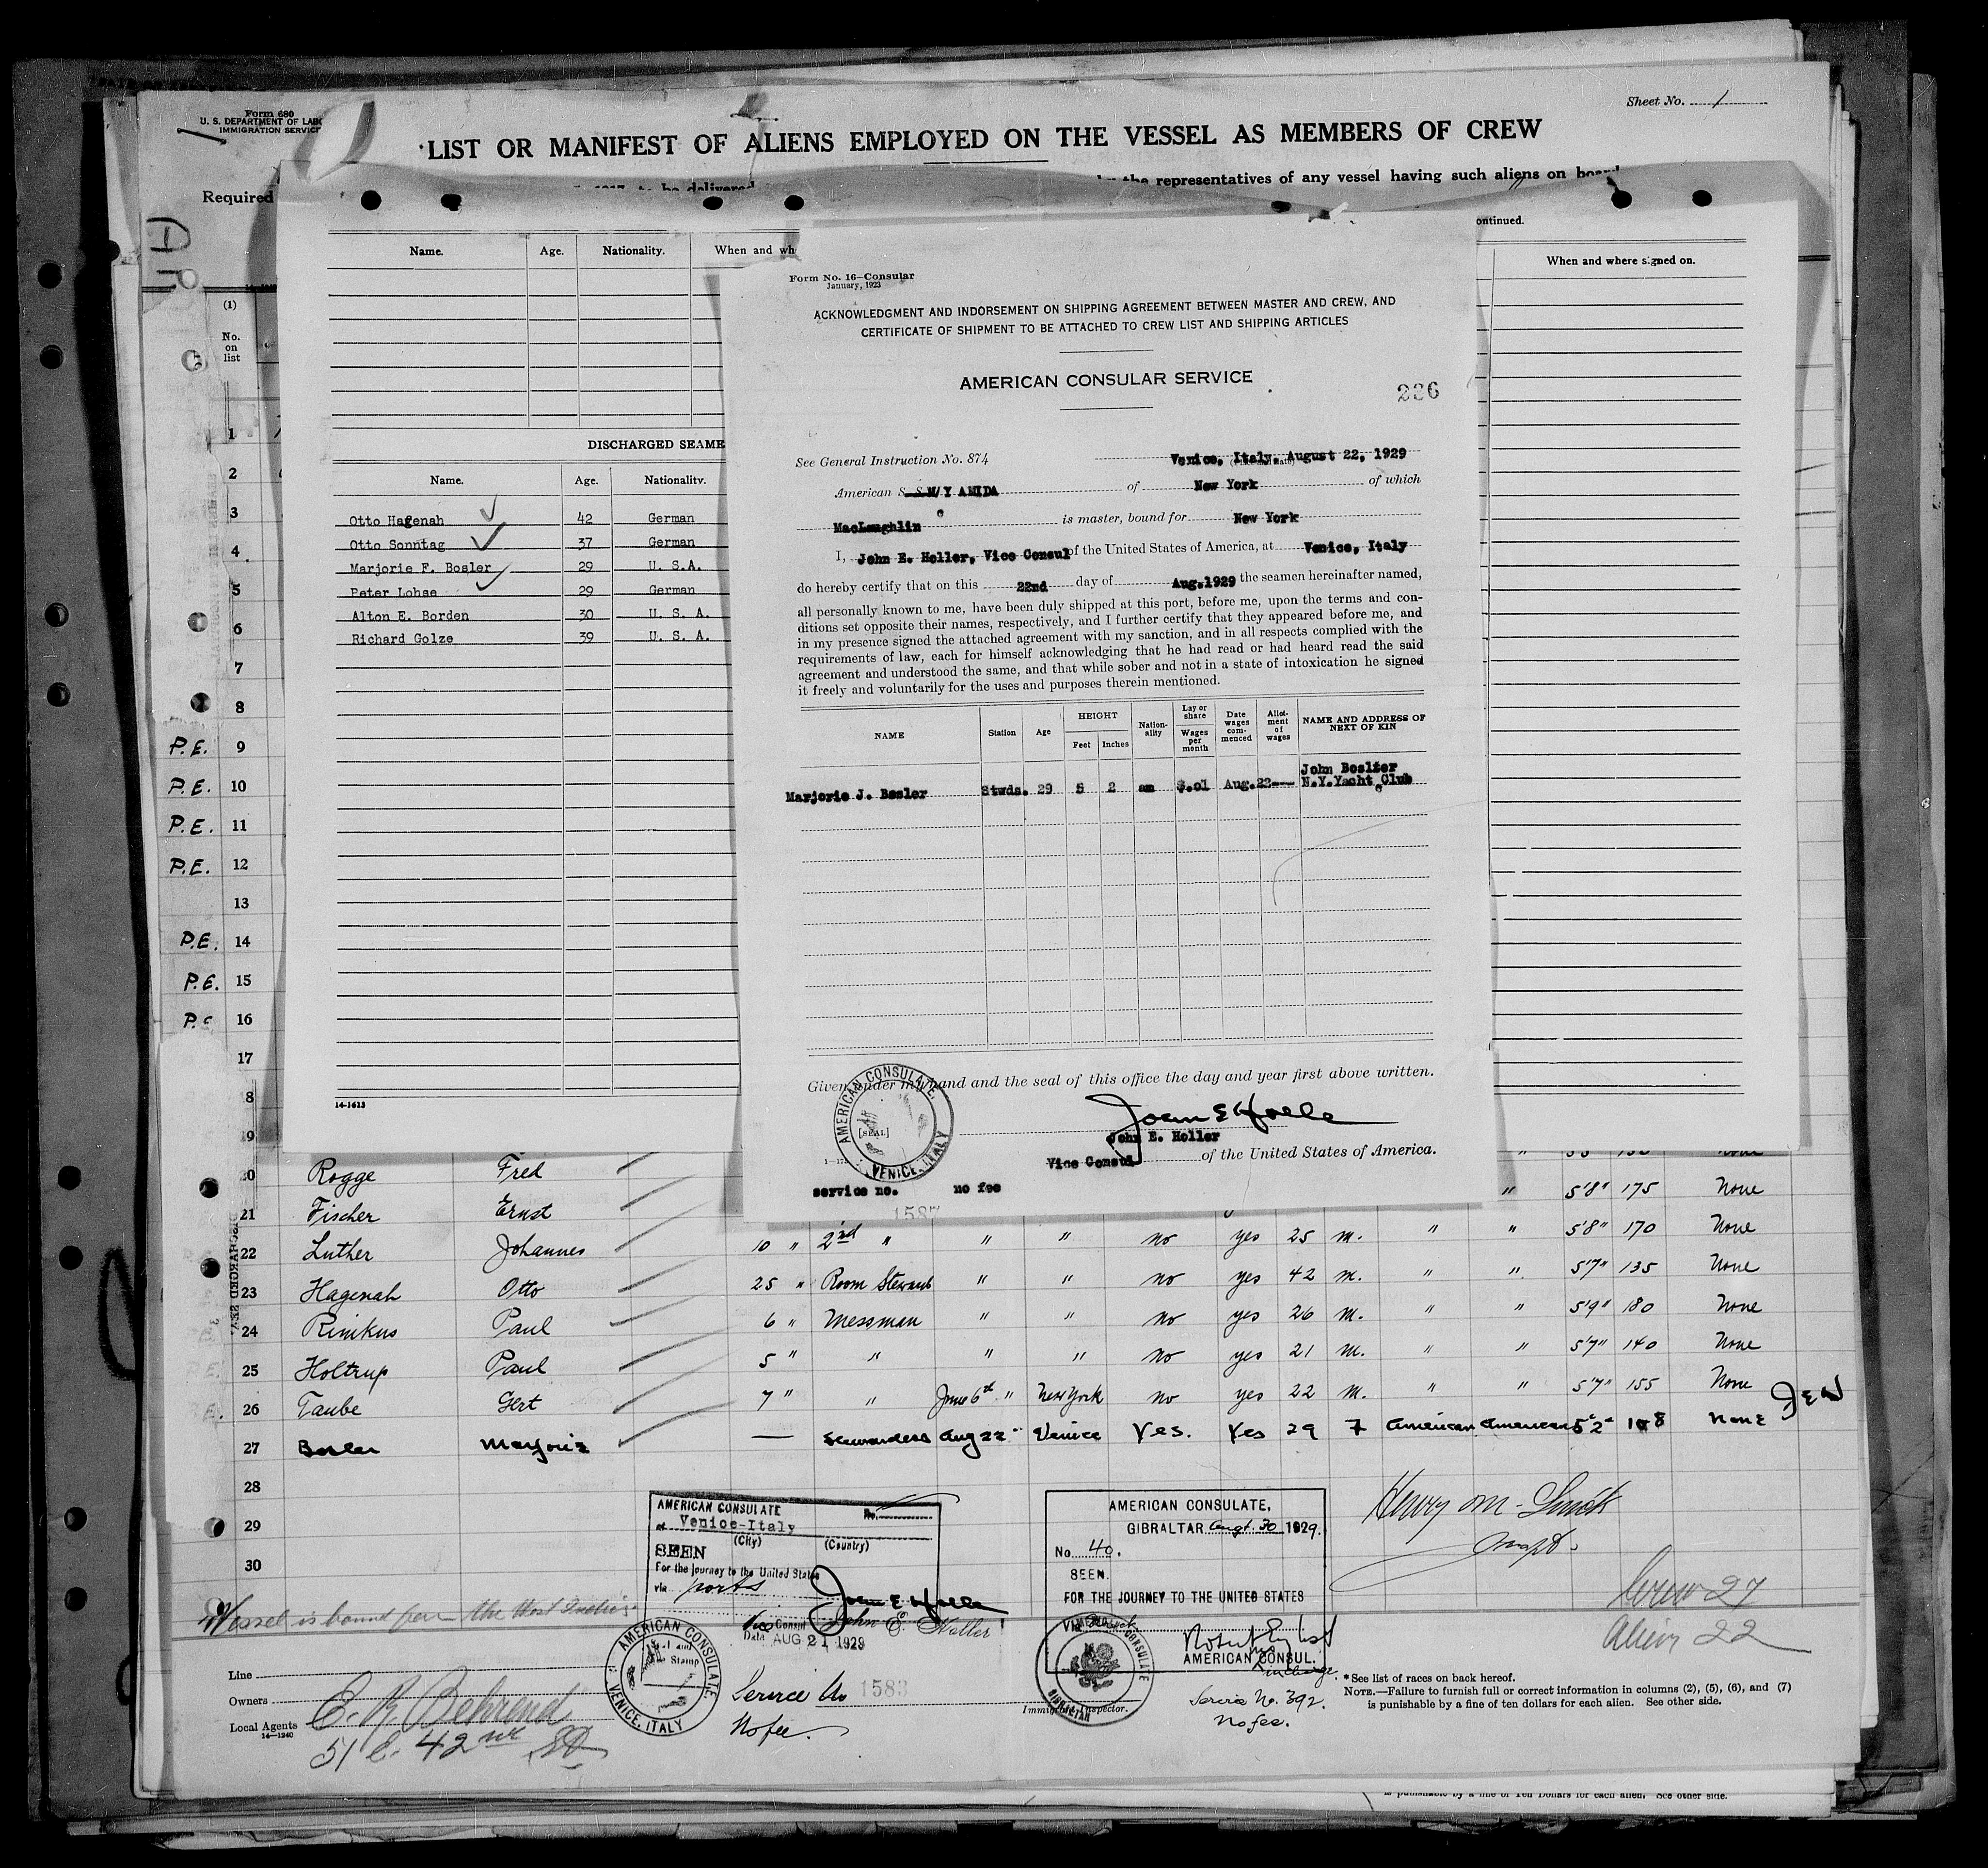 Form 680
U. S. DEPARTMENT OF LABO
IMMIGRATION SERVICE
Sheet No. 1
LIST OR MANIFEST OF ALIENS EMPLOYED ON THE VESSEL AS MEMBERS OF CREW
Required
to be delivered
the representatives of any vessel having such aliens on board
ontinued.
Name. Age. Nationality. When and wh
When and where signed on.
DISCHARGED SEAME
Name. Age. Nationality.
Otto Hagenah 42 German
Otto Sonntag 37 German
Marjorie F. Bosler 29 U. S.A.
Peter Lohse 29 German
Alton E. Borden 30 U. S. A.
Richard Golze 39 U. S. A.
14-1613
Form No. 16—Consular
January, 1923
ACKNOWLEDGMENT AND INDORSEMENT ON SHIPPING AGREEMENT BETWEEN MASTER AND CREW, AND
CERTIFICATE OF SHIPMENT TO BE ATTACHED TO CREW LIST AND SHIPPING ARTICLES
AMERICAN CONSULAR SERVICE
236
See General Instruction No. 874
Venice, Italy, August 22, 1929
American S. S. M/Y AMIDA of New York of which
MacLoughlin is master, bound for New York
I, John E. Holler, Vice Consul of the United States of America, at Venice, Italy
do hereby certify that on this 22nd day of Aug.1929 the seamen hereinafter named,
all personally known to me, have been duly shipped at this port, before me, upon the terms and con-
ditions set opposite their names, respectively, and I further certify that they appeared before me, and
in my presence signed the attached agreement with my sanction, and in all respects complied with the
requirements of law, each for himself acknowledging that he had read or had heard read the said
agreement and understood the same, and that while sober and not in a state of intoxication he signed
it freely and voluntarily for the uses and purposes therein mentioned.
NAME Station Age HEIGHT Feet Inches Nation-ality Lay or share Wages per month Date wages com-menced Allot-ment of wages NAME AND ADDRESS OF NEXT OF KIN
John Boslter
Marjorie J. Bosler Stwds. 29 5 2 am $.01 Aug.22 N.Y.Yacht Club
Given under my hand and the seal of this office the day and year first above written.
AMERICAN CONSULATE, VENICE, ITALY
[SEAL]
John E Holle
John E. Holler
Vice Consul of the United States of America.
service no. no fee
1587
(1)
No.
on
list
1
2
3
4
5
6
7
8
P.E. 9
P.E. 10
P.E. 11
P.E. 12
13
P.E. 14
P.E. 15
16
17
8
19
20 Rogge Fred
21 Fischer Ernst " 5'8" 175 None
22 Luther Johannes 10 " 2nd " " " no yes 25 m. " " 5'8" 170 None
23 Hagenah Otto 25 " Room Steward " " no yes 42 m. " " 5'7" 135 None
24 Rinikus Paul 6 " Messman " " no yes 26 m. " " 5'9" 180 None
25 Holtrup Paul 5 " " " " no yes 21 m. " " 5'7" 140 None
26 Taube Gert 7 " " June 6th " New York no yes 22 m. " " 5'7" 155 None
27 Bosler Marjorie — Stewardess Aug 22 " Venice Yes. Yes 29 7 American American 5'2" 108 None
28
29
30
AMERICAN CONSULATE
at Venice-Italy
(City) (Country)
SEEN
For the journey to the United States
via ports
John E Holle
Vice Consul John E. Holler
Date AUG 21 1929
AMERICAN CONSULATE VENICE, ITALY
Service No 1583
No fee.
AMERICAN CONSULATE,
GIBRALTAR Augt. 30 1929.
No. 40.
SEEN.
FOR THE JOURNEY TO THE UNITED STATES
AMERICAN CONSUL.
AMERICAN CONSULATE GIBRALTAR
Service No. 392.
No fee.
Crew 27
Aliens 22
Vessel is bound for the West Indies
Line
Owners
Local Agents
14-1240
E. R. Behrend
51 E. 42nd St
Immigrant Inspector.
*See list of races on back hereof.
NOTE.—Failure to furnish full or correct information in columns (2), (5), (6), and (7)
is punishable by a fine of ten dollars for each alien. See other side.
is punishable by a fine of Ten Dollars for each alien. See other side.